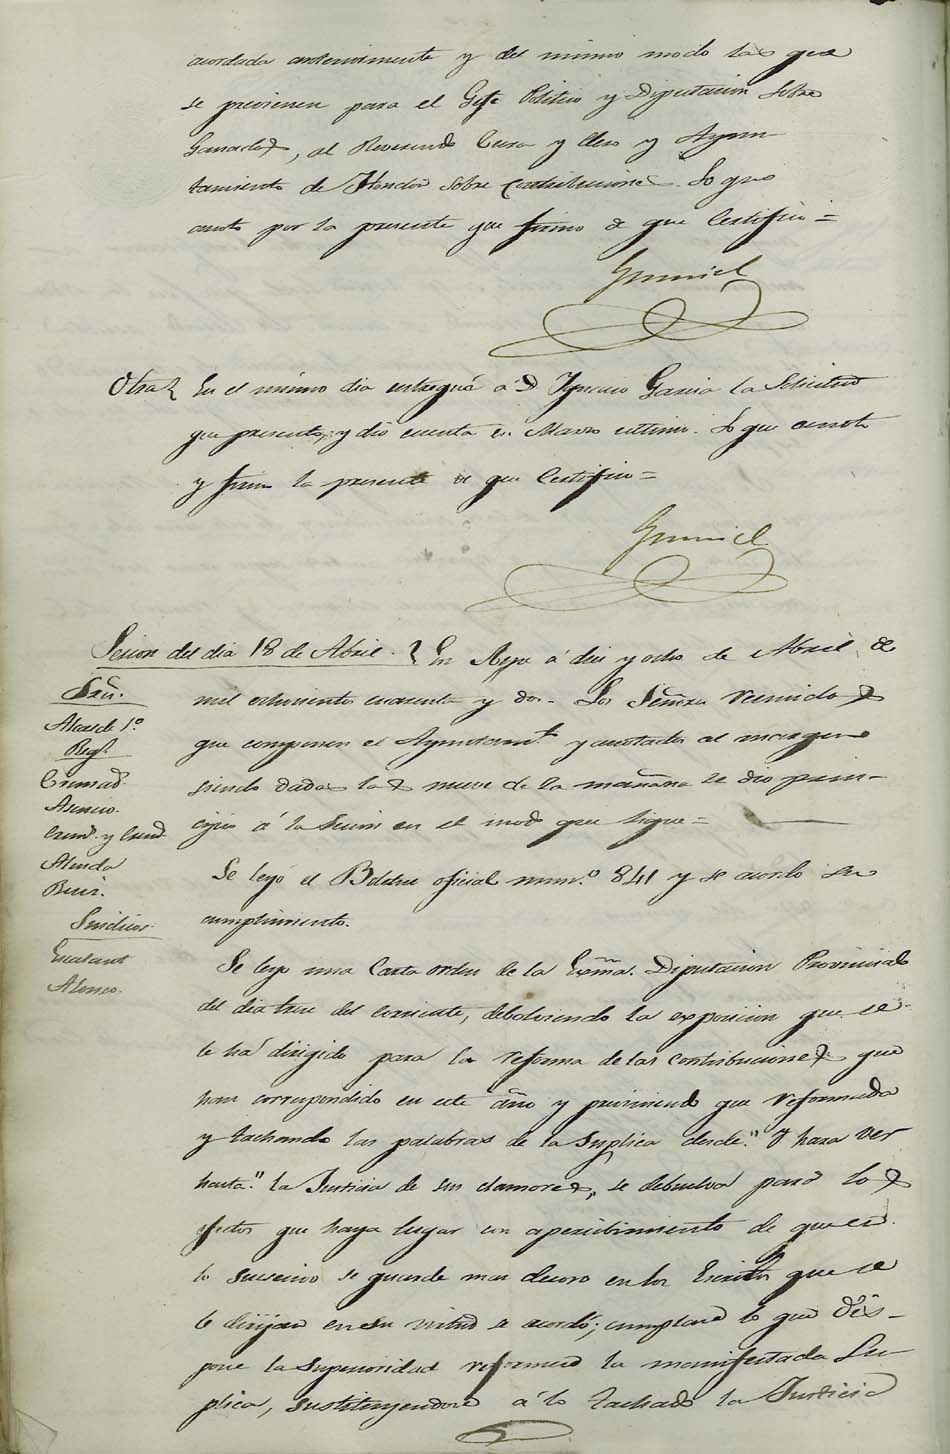 acordada anteriormente y del mismo modo las que
se previenen para el Gefe Politico y Diputacion sobre
Ganados, al Reverendo Cura y Clero y Ayun
tamiento de Hondon sobre contribuciones. Lo que
anoto por la presente que firmo de que Certifico =
Gumiel
Otra En el mismo dia entregué á D. Ignacio Garcia la Solicitud
que presentó, y dió cuenta en Marzo ultimo. Lo que anoto
y firmo la presente de que Certifico =
Gumiel
Sesion del dia 18 de Abril. En Aspe á diez y ocho de Abril de
mil ochocientos cuarenta y dos. Los Señores reunidos
que componen el Ayuntam.to y anotados al margen
siendo dadas las nueve de la mañana se dio prin-
cipio á la Sesion en el modo que sigue =
Sres.
Alcalde 1.º
Reg.s
Cremad.
Asencio.
Crem.s y Crem.d
Almda
Sindicos.
Alonso.
Se leyó el Boletin oficial num.º 841 y se acordó su
cumplimiento.
Se leyo una Carta orden de la Exma. Diputacion Provincial
del dia trece del corriente, debolviendo la exposicion que se
le há dirigido para la reforma de las contribuciones que
han correspondido en este año y previniendo que reformada
y tachando las palabras de la Suplica desde "Y haga ver
hasta" la Justicia de sus clamores, se debuelva para los
efectos que haya lugar con apercibimiento de que en
lo sucesivo se guarde mas decoro en los Escritos que se
le dirijan en su virtud se acordó; cumpliendo lo que dis-
pone la Superioridad reformese la manifestada Su-
plica, sustituyendose á lo tachado la Justicia